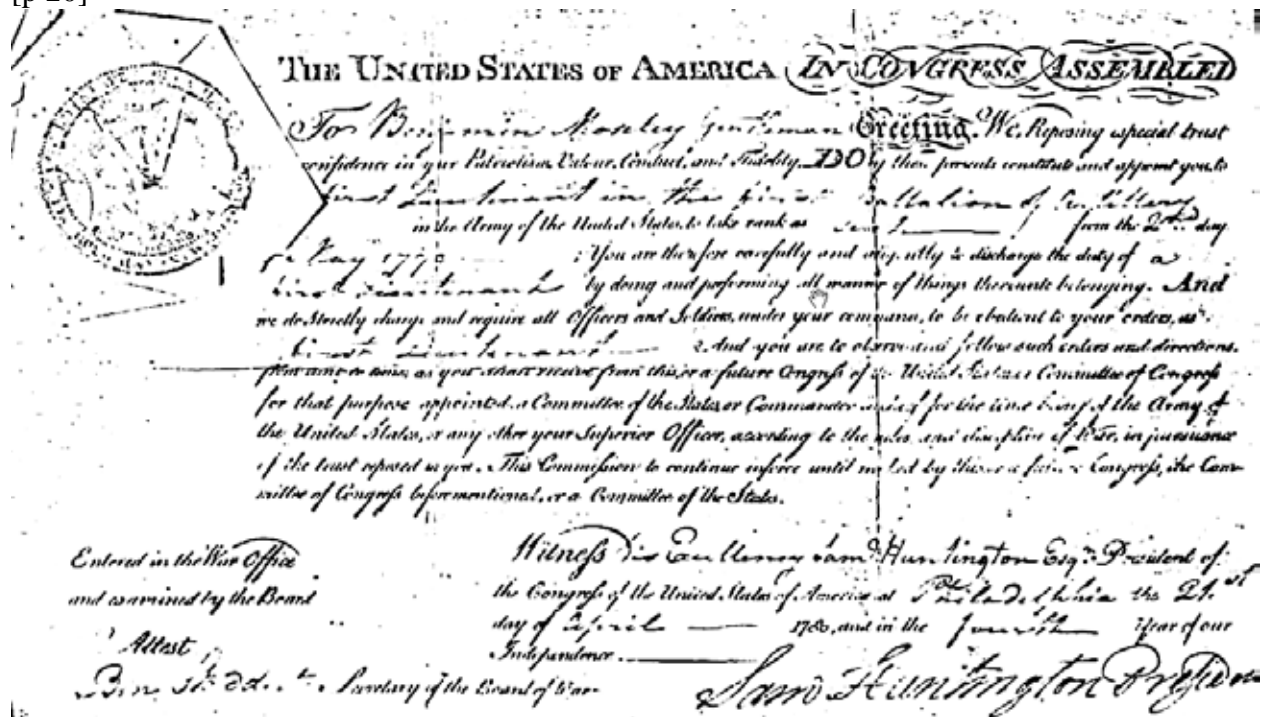 [p 20]
THE UNITED STATES OF AMERICA IN CONGRESS ASSEMBLED
To Benjamin Moseley Gentleman Greeting. We, Reposing especial trust
confidence in your Patriotism, Valour, Conduct, and Fidelity, DO by these presents constitute and appoint you to
first Lieutenant in the first Battalion of Artillery
in the Army of the United States, to take rank as from the 2nd day
May 177 You are therefore carefully and to discharge the duty of a
first Lieutenant by doing and performing all manner of things thereunto belonging. And
we do Strictly charge and require all Officers and Soldiers, under your command, to be obedient to your orders, as
first Lieutenant And you are to observe and follow such orders and directions.
from time to time, as you shall receive from this, or a future Congreſs of the United States or Committee of Congreſs
for that purpose appointed, a Committee of the States, or Commander in chief for the time being of the Army of
the United States, or any other your Superior Officer, according to the rules and discipline of War, in pursuance
of the trust reposed in you. This Commiſsion to continue in force until by this or a future Congreſs, the Com-
mittee of Congreſs before mentioned, or a Committee of the States.
Witneſs His Excellency Saml. Huntington Esqr. President of
the Congreſs of the United States of America at Philadelphia the 21st
day of April 1780, and in the fourth Year of our
Independence.
Entered in the War Office
and examined by the Board
Attest
Ben Secretary of the Board of War
Sam Huntington Presiden